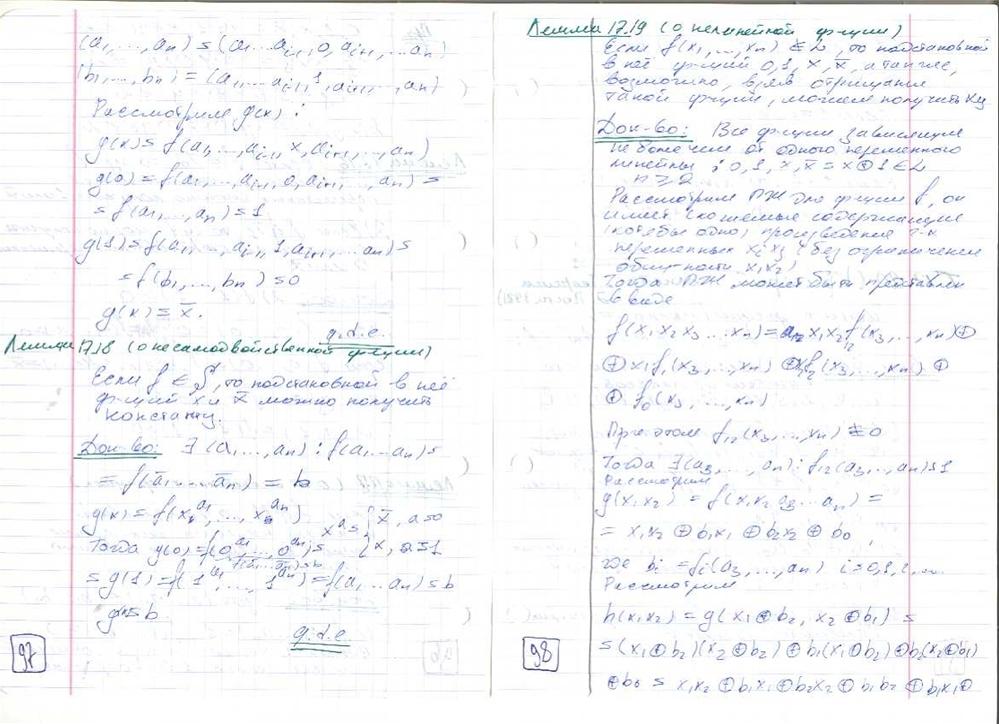 (a₁,...,aₙ) = (a₁...aᵢ₋₁, 0, aᵢ₊₁, ...aₙ)
(b₁,...,bₙ) = (a₁...aᵢ₋₁, 1, aᵢ₊₁, ..., aₙ)
Рассмотрим g(x) :
g(x) = f(a₁,...,aᵢ₋₁, x, aᵢ₊₁,...,aₙ)
g(0) = f(a₁,...,aᵢ₋₁, 0, aᵢ₊₁, ..., aₙ) =
= f(a₁,...,aₙ) = 1
g(1) = f(a₁,...,aᵢ₋₁, 1, aᵢ₊₁, ... aₙ) =
= f(b₁,...,bₙ) = 0
g(x) = x̄.
q.d.e.
Лемма 17.18 (о несамодвойственной ф-ции)
Если f ∉ S, то подстановкой в неё
ф-ций x и x̄ можно получить
константу.
Док-во: ∃ (a₁,...,aₙ) : f(a₁...aₙ) =
= f(ā₁,...,āₙ) = b
g(x) = f(x^a₁, ..., x^aₙ) x^a = { x̄, a=0
Тогда g(0) = f(0^a₁, ..., 0^aₙ) = { x, a=1
f(ā₁...āₙ) = b
= g(1) = f(1^a₁, ..., 1^aₙ) = f(a₁...aₙ) = b
g(x) = b.
q.d.e.
97
Лемма 17.19 (о нелинейной ф-ции)
Если f(x₁,...,xₙ) ∉ L, то подстановкой
в неё ф-ций 0, 1, x, x̄, а также,
возможно, взяв отрицание
такой ф-ции, можем получить xy
Док-во: Все ф-ции зависящие
не более чем от одного переменного
линейны : 0, 1, x, x̄ = x ⊕ 1 ∈ L
n ≥ 2
Рассмотрим ПЖ для ф-ции f, он
имеет слагаемые содержащие
(хотя бы одно) произведение 2-х
переменных xᵢ xⱼ (без ограничения
общности x₁x₂)
Тогда ПЖ может быть представлен
в виде
f(x₁ x₂ x₃ ... xₙ) = x₁ x₂ f₁₂(x₃, ..., xₙ) ⊕
⊕ x₁ f₁(x₃, ..., xₙ) ⊕ x₂ f₂(x₃, ..., xₙ) ⊕
⊕ f₀(x₃, ..., xₙ)
При этом f₁₂(x₃, ..., xₙ) ≢ 0
Тогда ∃(a₃, ..., aₙ) : f₁₂(a₃,...,aₙ) = 1
Рассмотрим
g(x₁ x₂) = f(x₁ x₂ a₃ ... aₙ) =
= x₁x₂ ⊕ b₁x₁ ⊕ b₂x₂ ⊕ b₀,
где bᵢ = fᵢ(a₃,...,aₙ) i=0,1,2,...
Рассмотрим
h(x₁ x₂) = g(x₁ ⊕ b₂, x₂ ⊕ b₁) =
= (x₁ ⊕ b₂)(x₂ ⊕ b₂) ⊕ b₁(x₁ ⊕ b₂) ⊕ b₂(x₂ ⊕ b₁)
⊕ b₀ = x₁x₂ ⊕ b₁x₁ ⊕ b₂x₂ ⊕ b₁b₂ ⊕ b₁x₁ ⊕
98